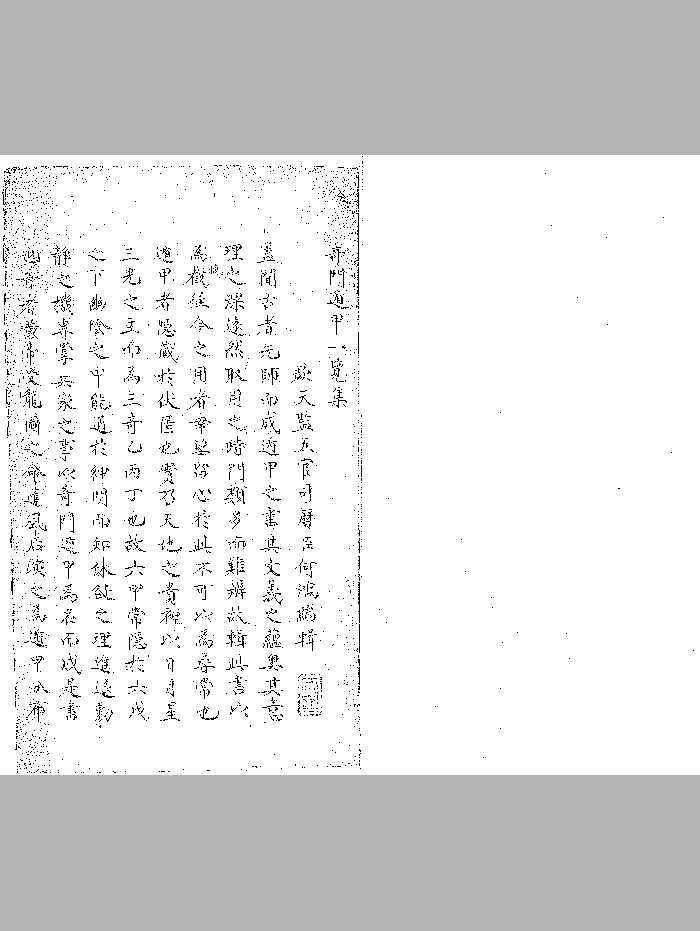 奇門遁甲一覽集
欽天監五官司曆臣何 輯
蓋聞古者先師而成遁甲之書其文義之蘊奧其意
理之深遠然取用之時門類多而難辨故輯此書以
為觀往今之用者幸留心於此不可以為尋常也
遁甲者隱藏於伏匿也實乃天地之貴神以日月星
三光之主而為三奇乙丙丁也故六甲常隱於六戊
之下幽陰之中能通於神明而知休咎之理進退動
靜之機專掌兵家之事以奇門遁甲為名而成是書
者黃帝受龍 之命遣風后演之為遁甲分布